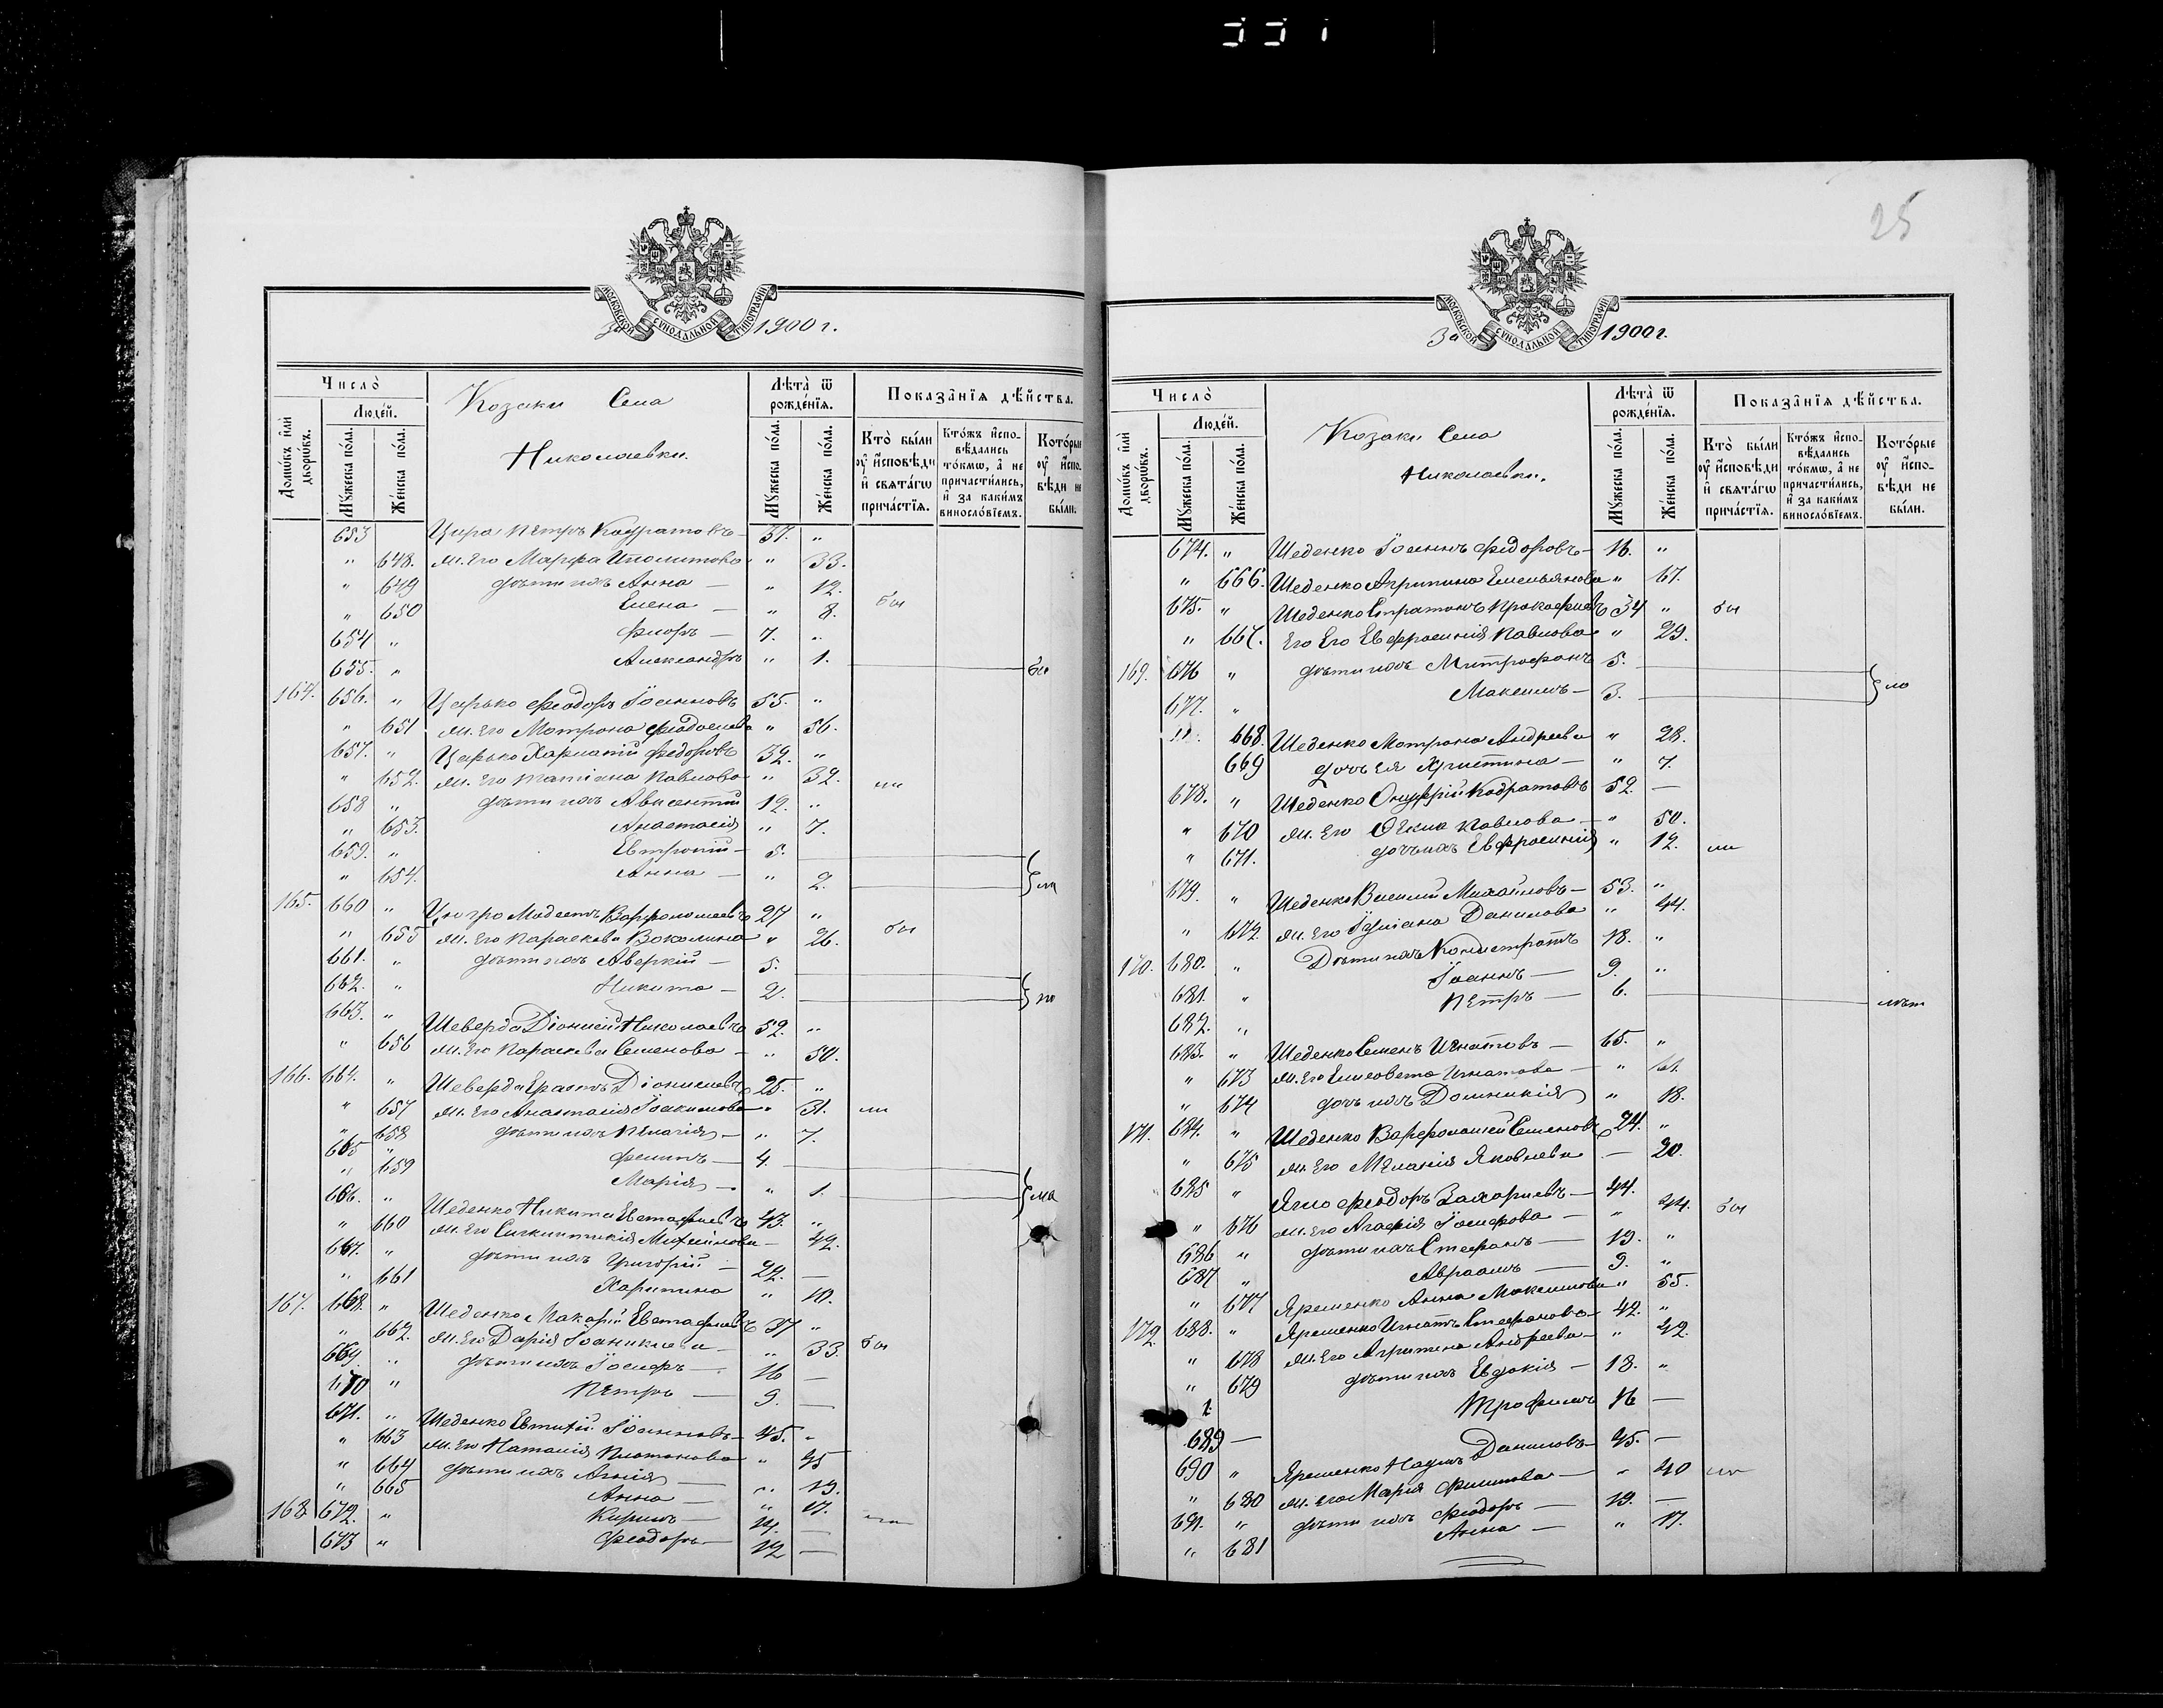 25
МОСКОВСКОЙ СѴНОДАЛЬНОЙ ТИПОГРАФІИ
За 1900 г.
Число̀
Домѡ́въ и҆лѝ дворѡ́въ.
Люде́й.
Мꙋ́жеска по́ла.
Же́нска по́ла.
Козаки Села
Николаевки.
Лѣ̑та̀ ѿ рожде́нїѧ.
Мꙋ́жеска по́ла.
Же́нска по́ла.
Показа̑нїѧ дѣ́йства.
Кто̀ бы́ли ᲂу҆ и҆́сповѣди и҆ свѧта́гѡ прича́стїѧ.
Кто́жъ и҆спо-вѣ́дались то́кмѡ, а҆ не причасти́лись, и҆ за каки́мъ винослові́емъ.
Кото́рые ᲂу҆ и҆спо-вѣди не бы́ли.
653 Петръ 37. „
„ 648. ж. его Марфа „ 33.
„ 649 дѣти ихъ Анна — „ 12.
„ 650 Елена — „ 8. бы
654 „ — 7. „
655. „ Александръ „ 1.
164. 656. „ Царько Феодоръ Іоанновъ 55. „
„ 651 ж. его Матрона „ 56.
657. „ Царько Феодоровъ 32. „
„ 652. ж. его Татіана Павлова „ 32. ли
658 „ дѣти ихъ 12. „
„ 653. Анастасія „ 7.
659. „ Евтропій — 5.
„ 654. Анна — „ 2.
165. 660 „ Модестъ Варфоломеевъ 27 „
„ 655 ж. его Параскева „ 26. бы
661. „ дѣти ихъ Аверкій — 5.
662. „ Никита — 2.
663. „ Шеверда Діонисій Николаевъ 52. „
„ 656 ж. его Параскева Семенова — „ 50.
166. 664. „ Шеверда Діонисіевъ 25. „
„ 657 ж. его Анастасія Іоакимова „ 31. ли
„ 658 дѣти ихъ Пелагія — „ 7.
665 „ Филипъ — 4.
„ 659 Марія — „ 1.
666. „ Шеденко Никита Евстафіевъ 43. „
„ 660 ж. его „ 42.
667. „ дѣти ихъ Григорій — 22. —
„ 661 Харитина „ 10.
167. 668. „ Шеденко Макарій Евстафіевъ 37 „
„ 662. ж. его Дарія Іоанникіева — „ 33. бы
669. „ дѣти ихъ Іосифъ — 16 —
670 „ Петръ — 9. —
671. „ Шеденко Евтихій Іоанновъ — 45. „
„ 663 ж. его Наталія Платонова „ 45
„ 664 дѣти ихъ — „ 19.
„ 665 Анна — „ 17.
168. 672. „ Кирилъ — 14. —
673 „ Феодоръ — 12 —
МОСКОВСКОЙ СѴНОДАЛЬНОЙ ТИПОГРАФІИ
За 1900 г.
Число̀
Домѡ́въ и҆лѝ дворѡ́въ.
Люде́й.
Мꙋ́жеска по́ла.
Же́нска по́ла.
Козаки Села
Николаевки.
Лѣ̑та̀ ѿ рожде́нїѧ.
Мꙋ́жеска по́ла.
Же́нска по́ла.
Показа̑нїѧ дѣ́йства.
Кто̀ бы́ли ᲂу҆ и҆́сповѣди и҆ свѧта́гѡ прича́стїѧ.
Кто́жъ и҆спо-вѣ́дались то́кмѡ, а҆ не причасти́лись, и҆ за каки́мъ винослові́емъ.
Кото́рые ᲂу҆ и҆спо-вѣди не бы́ли.
674. „ Шеденко Іоаннъ Феодоровъ — 16. „
„ 666. Шеденко Агрипина Емельянова „ 67.
675. „ Шеденко Стратонъ Прокофіевъ 34 „ бы
„ 667. Его Евфросинія Павлова „ 29.
169. 676 „ дѣти ихъ Митрофанъ 5.
677. „ Максимъ — 3.
668. Шеденко Матрона Андреева „ 28.
669 дочь ея Христина — „ 7.
678. „ Шеденко Онуфрій Кодратовъ 52 —
„ 670 ж. его Павлова — „ 50.
„ 671. дочь ихъ Евфросинія „ 12. ли
679. „ Шеденко Василій Михайловъ — 53. „
„ 672 ж. его Іуліана Данилова „ 44.
170. 680. „ Дѣти ихъ Кондратъ 18. „
681. „ Іоаннъ — 9. „
682. „ Петръ — 6.
683. „ Шеденко Семенъ Игнатовъ — 65. „
„ 673 ж. его Елисавета Игнатова — „ 61.
„ 674 дочь ихъ Домникія „ 18.
171. 684. „ Шеденко Варфоломей Семеновъ 24. „
„ 675 ж. его Меланія Яковлева — 20.
685 „ Феодоръ Захаріевъ — 44.
„ 676 ж. его Агафія Іосифова — „ 44. бы
686 „ дѣти ихъ Стефанъ — 19. „
687 „ Авраамъ — 9. „
„ 677 Яременко Анна Максимова „ 55.
172. 688. „ Яременко Игнатъ Стефановъ — 42. „
„ 678 ж. его Агрипина Андреева — „ 42.
„ 679 дѣти ихъ Евдокія — 18. „
1. Трофимъ 16 —
689 —
690 „ Яременко Наумъ Даниловъ — 45. —
„ 680 ж. его Марія Филипова — „ 40 ли
691. „ дѣти ихъ Феодоръ — 19. —
„ 681 Анна — „ 17.